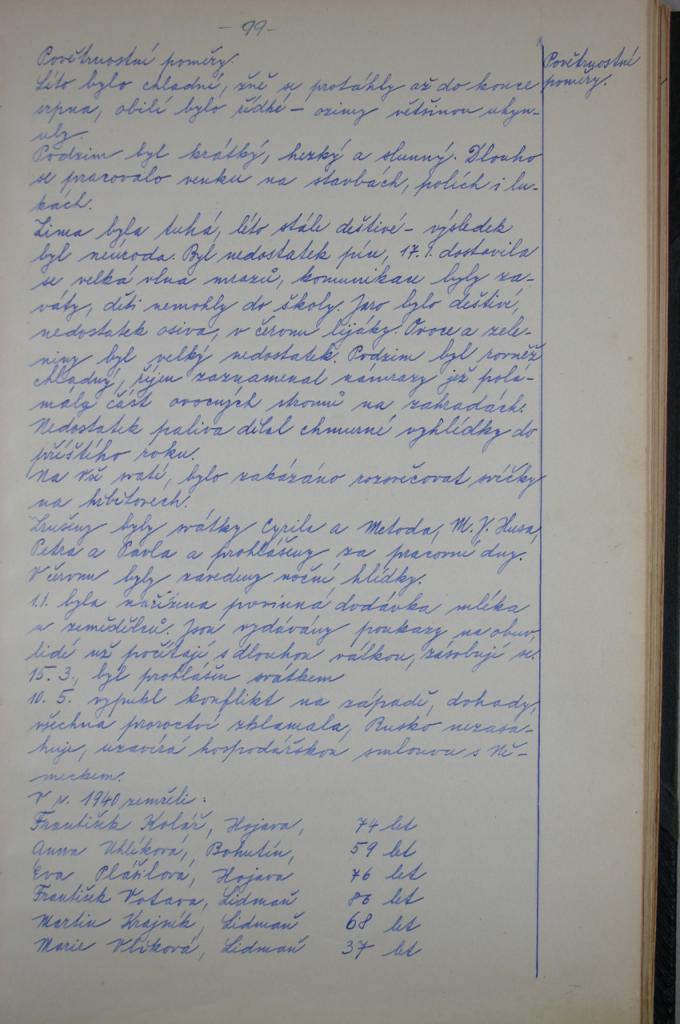 - 99 -
Povětrnostní poměry.
Povětrnostní
poměry.
Léto bylo chladné, žně se protáhly až do konce
srpna, obilí bylo řídké - ozimy většinou uhyn-
uly.
Podzim byl krátký, hezký a slunný. Dlouho
se pracovalo venku na stavbách, polích i lu-
kách.
Zima byla tuhá, léto stále deštivé - výsledek
byl neúroda. Byl nedostatek píce, 17.1. dostavila
se velká vlna mrazů, komunikace byly za-
váty, děti nemohly do školy. Jaro bylo deštivé,
nedostatek osiva, v červnu lijáky. Ovoce a zele-
niny byl velký nedostatek. Podzim byl rovněž
chladný, říjen zaznamenal námrazy jež polá-
maly část ovocných stromů na zahradách.
Nedostatek paliva dělal chmurné vyhlídky do
příštího roku.
Na Vše svaté, bylo zakázáno rozsvěcovat svíčky
na hřbitovech.
Zrušeny byly svátky Cyrila a Metoda, M. J. Husa,
Petra a Pavla a prohlášeny za pracovní dny.
V červnu byly zavedeny noční hlídky.
1.1. byla nařízena povinná dodávka mléka
u zemědělců. Jsou vydávány poukazy na obuv,
lidé už počítají s dlouhou válkou, zásobují se.
15. 3., byl prohlášen svátkem
10. 5. vypukl konflikt na západě, dohady,
všechna proroctví zklamala, Rusko nezasa-
huje, uzavírá hospodářskou smlouvu s Ně-
meckem.
V r. 1940 zemřeli:
František Kolář, Hojava, 74 let
Anna Uhlíková, Bohutín, 59 let
Eva Plášilová, Hojava 76 let
František Votava, Lidmaň 86 let
Martin Krajník, Lidmaň 68 let
Marie Vlčková, Lidmaň 37 let